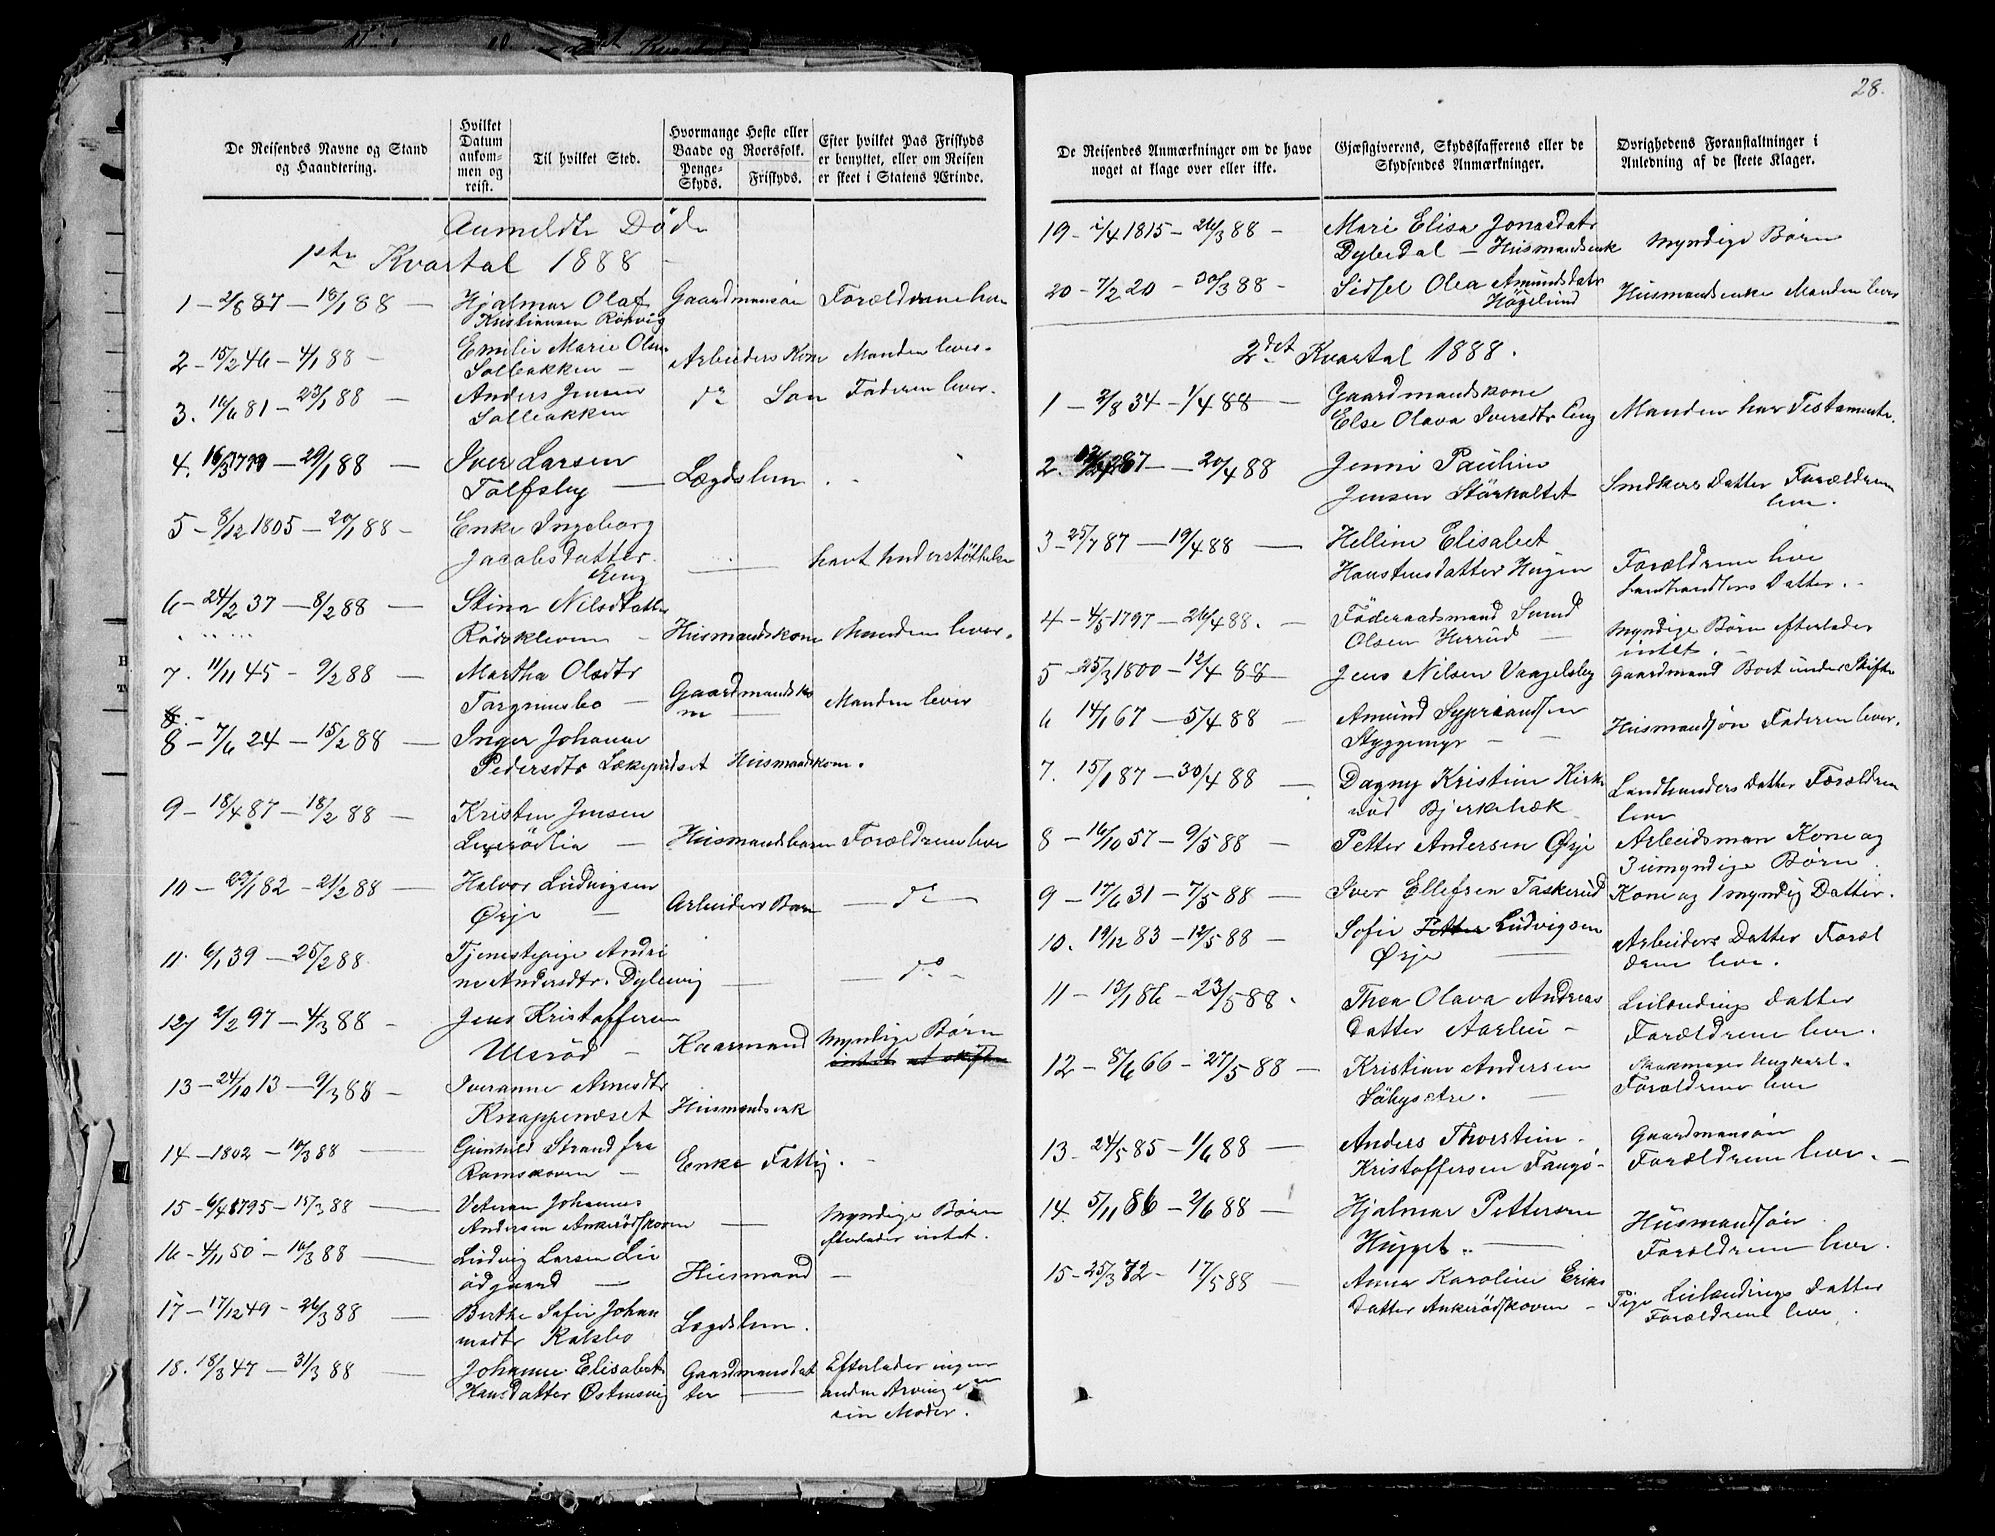 28.
De Reisendes Navne og Stand
og Haandtering.
Hvilket
Datum
ankom-
men og
reist.
Til hvilket Sted.
Hvormange Heste eller
Baade og Roersfolk.
Penge-
Skyds.
Friskyds.
Efter hvilket Pas Friskyds
er benyttet, eller om Reisen
er skeet i Statens Ærinde.
Anmeldte Døde
1ste Kvartal 1888
1 - 2/8 87 - 18/1 88 - Hjalmar Olaf Gaardmansøn Forældrene leve
Kristiansen Rörvig
2 - 15/2 46 - 4/1 88 - Emilie Marie Olsen Arbeiders Kone Manden lever.
Solbakken -
3. 16/6 81 - 23/1 88 - Anders Jensen do Søn Faderen lever.
Solbakken
4. 16/3 1779 - 29/1 88 - Iver Larsen Lægdslem
Tolfsby
5 - 8/12 1805 - 20/1 88 - Enke Ingeborg
Jacobsdatter havt understøttelse
Eng
6 - 24/2 37 - 8/2 88 - Stina Nilsdatter
Rödskleven - Husmandskone Manden lever.
7. 11/11 45 - 9/2 88 - Martha Olsdtr Gaardmandsko
Targrimsbo - ne Manden lever
8 - 7/6 24 - 15/2 88 - Inger Johanne
Pedersdtr Husmandskone.
9 - 18/4 87 - 18/2 88 - Kristen Jensen
Husmandsbarn Forældrene leve
10 - 29/1 82 - 21/2 88 - Halvor Ludvigsen
Ørje - Arbeiders Barn - do -
11. 6/1 39 - 25/2 88. Tjenestepige Andri
ne Andersdtr. Dyblevig - do -
12 2/2 97 - 4/3 88 - Jens Kristoffersen Myndige Børn
Ulsröd - Kaarmand intet at skifte
13 - 24/10 13 - 9/3 88 - Iveranne Arnesdtr
Knappenæset Husmandsenk
14 - 1802 - 10/3 88 - Gunhild Strand fra
Ramskoven - Enke Fattig. -
15 - 6/4 1795 - 15/3 88 - Veteran Johannes Myndige Börn
Andersen Ankerödskoven - efterlader intet.
16 - 4/11 50 - 16/3 88 - Ludvig Larsen Lie
ödgaard - Husmand -
17 - 17/12 49 - 26/3 88 - Berthe Sofie Johan
nesdtr Kalsbo Lægdslem.
18. 18/3 47 - 31/3 88 - Johanne Elisabet Gaardmansdat Efterlader ingen
Hansdatter Østensvig ter - anden Arving en
sin Moder.
De Reisendes Anmærkninger om de have
noget at klage over eller ikke.
Gjæstgiverens, Skydsskafferens eller de
Skydsendes Anmærkninger.
Øvrighedens Foranstaltninger i
Anledning af de skeete Klager.
19 - 1/4 1815 - 26/3 88 - Marie Elisa Jonasdatr
Dybedal - Husmandsenk Myndige Børn
20 - 7/2 20 - 30/3 88 - Sidsel Olea Amundsdatr
Högelund Husmandsenke Manden lever
2det Kvartal 1888.
1 - 2/8 34 - 1/4 88 - Gaardmandskone
Else Olava Iversdtr Eng Manden har Testamente.
2. 87 - 20/4 88 Jenni Pauline
Jensen Störholtet Smedkers Datter Forældrene
leve.
3 - 25/7 87 - 19/4 88 - Helline Elisabet
Haustensdatter Hugen Forældrene leve
Landhandlers Datter. -
4 - 4/5 1797 - 26/4 88. - Föderaadsmand Svend
Olsen Herrud - Myndige Børn efterlader
intet. -
5 - 25/3 1800 - 12/4 88 - Jens Nilsen Vaagelsby Gaardmand Boet under Skifte
6 14/1 67 - 5/4 88 - Amund Sypriansen
Styggemyr - Husmandsøn Faderen lever.
7. 15/1 87 - 30/4 88 - Dagny Kristine Kirke
röd Bjerkebæk Landhanders Datter Forældrene
leve
8 - 16/10 57 - 9/5 88 - Petter Andersen Ørje Arbeidsman Kone og
3 umyndige Børn
9 - 17/6 31 - 7/5 88 - Iver Ellefsen Taskerud Kone og 1 myndig Datter.
10. 19/12 83 - 12/5 88 - Sofie Petter Ludvigsen
Ørje Arbeiders Datter Foræl
drene leve.
11 - 13/1 86 - 23/5 88. Thea Olava Andreas Leilændings Datter
datter Aarbu - Forældrene leve.
12 - 8/6 66 - 27/5 88 - Kristian Andersen Skomager Ungkarl.
Säbysetre. - Forældrene leve
13 - 24/5 85 - 1/6 88 - Anders Thorstein Gaardmansøn
Kristoffersen Tangö - Forældrene leve. -
14. 5/11 86 - 2/6 88 - Hjalmar Pettersen Husmandsøn
Huggel. - Forældrene leve.
15 - 25/3 72 - 17/5 88 - Anna Karoline Eriks
datter Ankerödskoven - Pige Leilændings Datter
Forældrene leve.